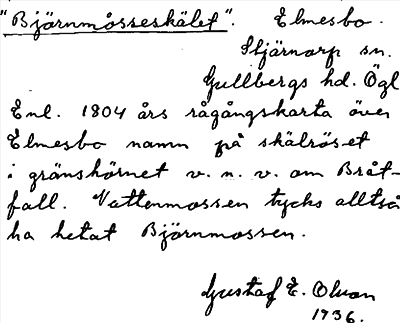 "Björnmosseskälet". Elmesbo.
Stjärnorp sn.
Gullbergs hd. Ögl
Enl. 1804 års rågångskarta över
Elmesbo namn på skälröset
i gränshörnet v. n. v. om Bråt-
fall. Vattenmossen tycks alltså
ha hetat Björnmossen.
Gustaf E. Olson
1936.